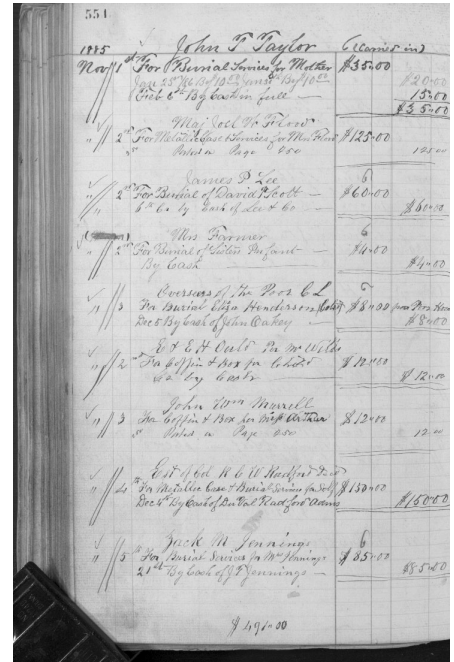 551
1885 John T Taylor (Carried in)
Nov 1st For Burial Services for Mother $35.00
20.00
Feb 6th By Cash in full 15.00
$35.00
Maj Joel W Flood
" 2nd For Metallic Case & Services for Mrs Flood $125.00
" Posted on Page 250 125.00
James P. Lee 6
" 2nd For Burial of David P Scott — $60.00
6th Cr by Cash of Lee & Co $60.00
Mrs Farmer 6
" 2nd For Burial of Sisters Infant — $4.00
By Cash $4.00
Overseers of the Poor C L 6
" 3 For Burial Eliza Henderson $8.00
Dec 5 By Cash of John Oakey — $8.00
" 2 For Coffin & Box for Child $12.00
Cr by Cash $12.00
John Wm Murrell
" 3 For Coffin & Box for Miss Arthur $12.00
" Posted on Page 250 12.00
Est of Col R C W Radford
" 4th For Metallic Case & Burial Services for Self $150.00
Dec 4th By Cash of DuVal Radford Adms $150.00
Jack M Jennings 6
" 5th For Burial Services for Mrs Jennings $85.00
21st By Cash of J T Jennings — $85.00
$491.00